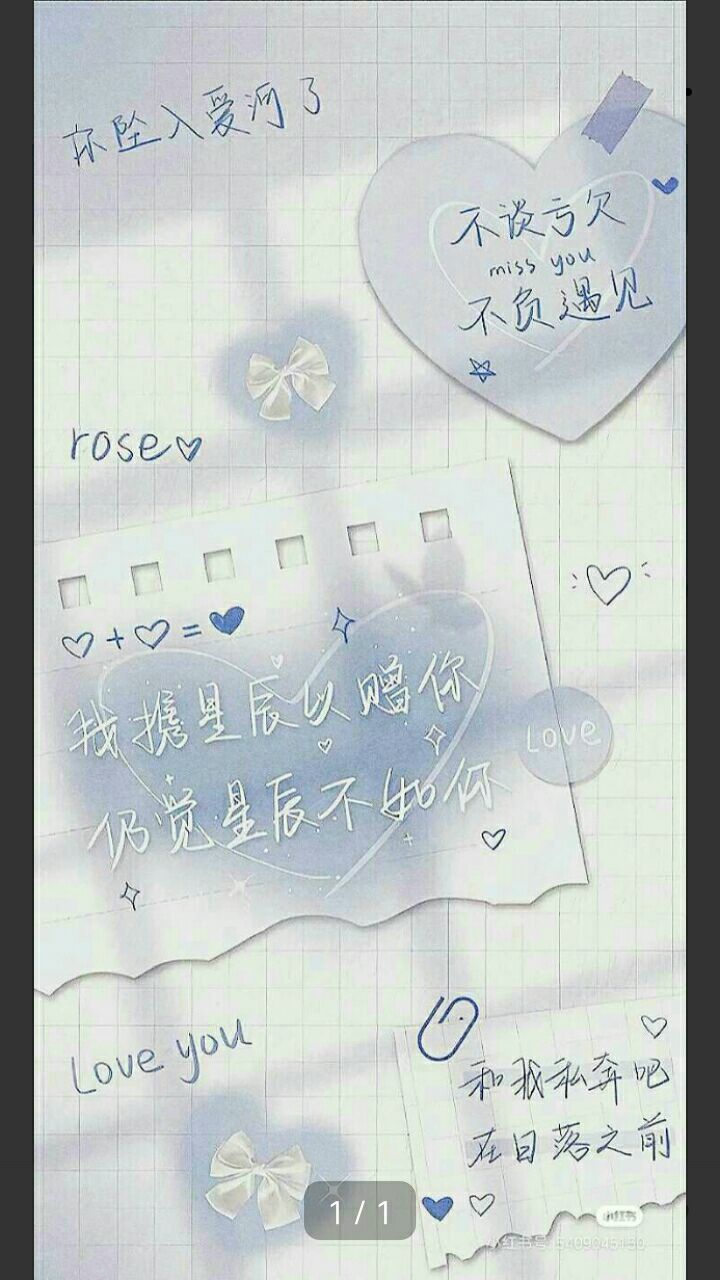 你坠入爱河了
不谈亏欠
miss you
不负遇见
rose
+ =
我携星辰以赠你
仍觉星辰不如你
Love
Love you
和我私奔吧
在日落之前
1 / 1
小红书
小红书号:5409045150